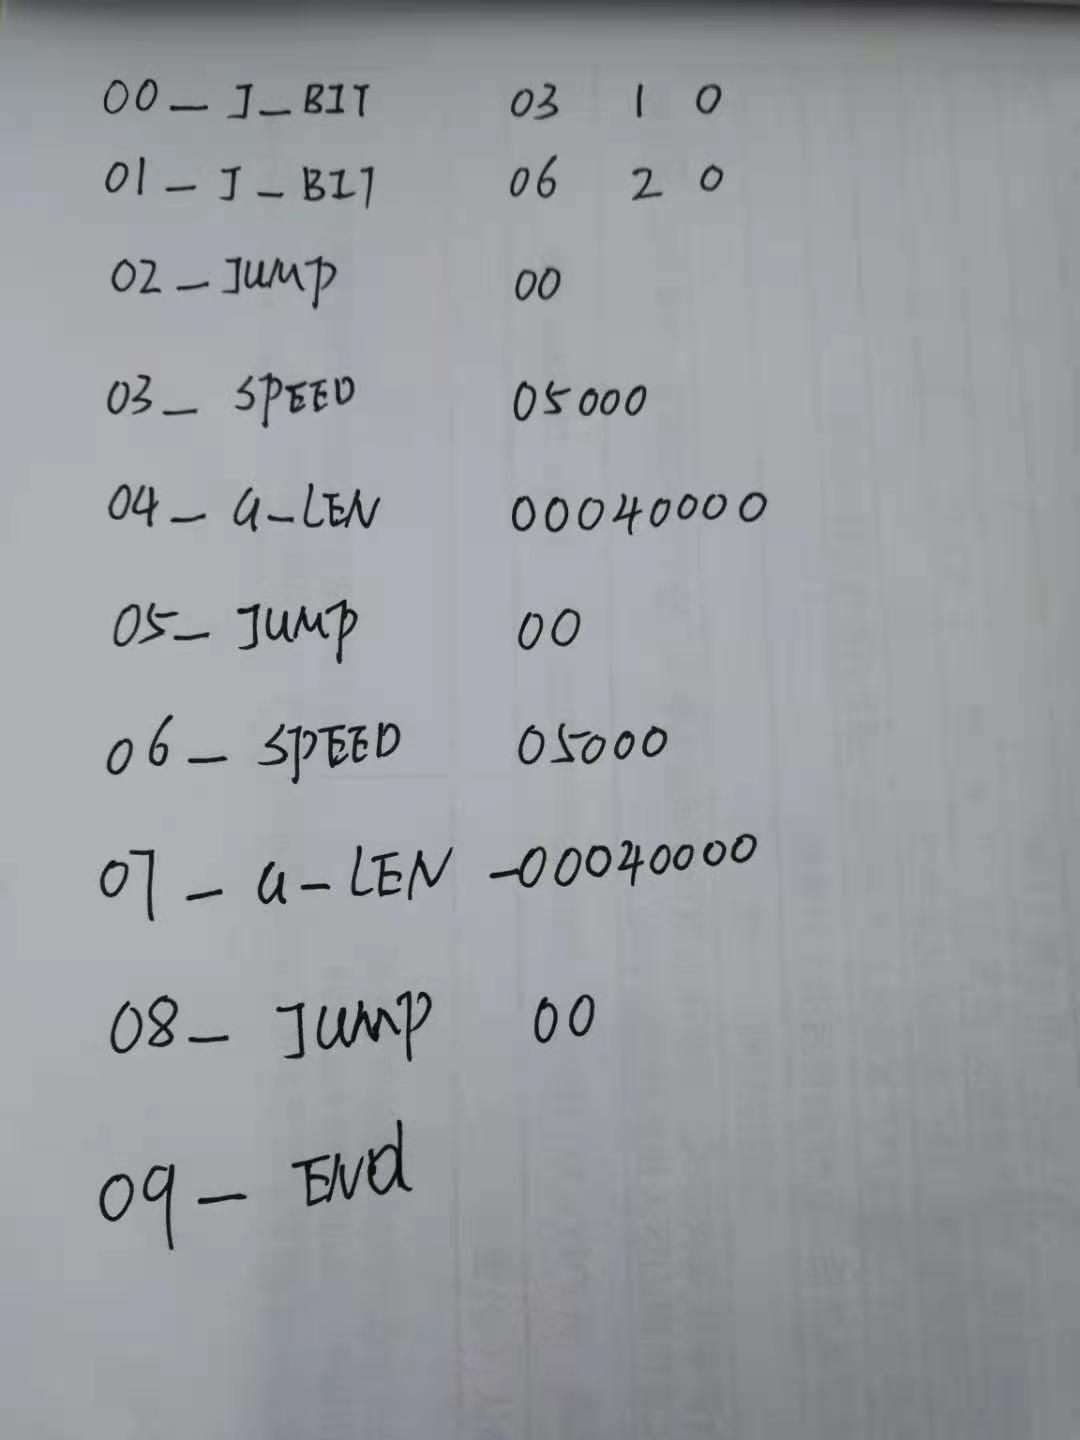 00 — J_BIT 03 1 0
01 — J_BIT 06 2 0
02 — JUMP 00
03 — SPEED 05000
04 — G-LEN 00040000
05 — JUMP 00
06 — SPEED 05000
07 — G-LEN -00040000
08 — JUMP 00
09 — ENd